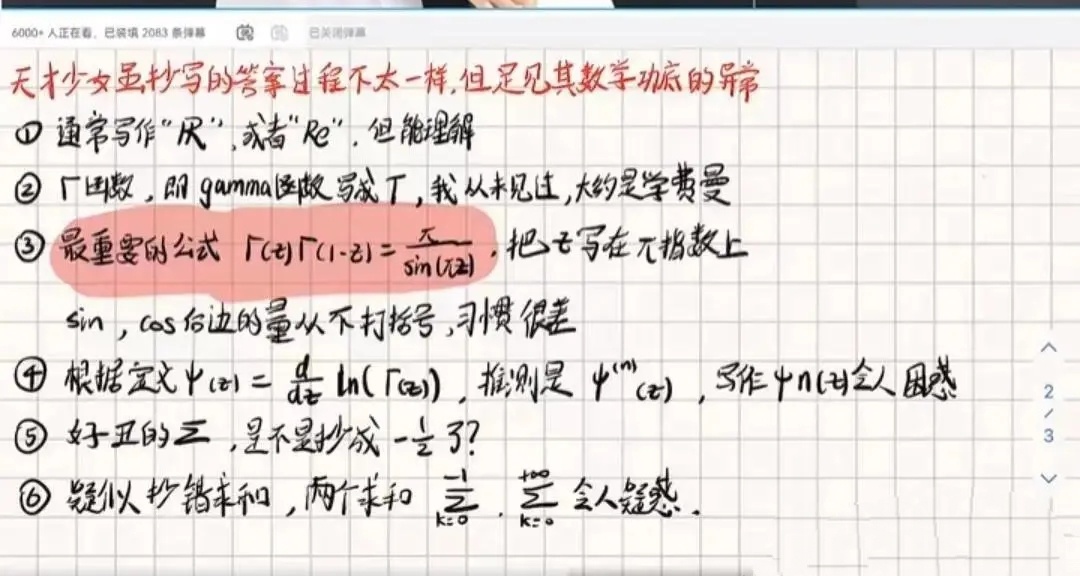 6000+ 人正在看，已装填 2083 条弹幕 已关闭弹幕
天才少女虽抄写的答案过程不太一样，但足见其数学功底的异常
① 通常写作“ℝ”，或者“Re”，但能理解
② Γ函数，即 gamma函数 写成 T，我从未见过，大约是学费曼
③ 最重要的公式 Γ(z)Γ(1-z) = π/sin(πz)，把z写在π指数上
sin，cos后边的量从不打括号，习惯很差
④ 根据定义 ψ(z) = d/dz ln(Γ(z))，推测是 ψ⁽ⁿ⁾(z)，写作 ψn(z)令人困惑
⑤ 好丑的Σ，是不是抄成 -1/2 了？
⑥ 疑似抄错求和，两个求和 Σ_{k=0}^{-1}，Σ_{k=0}^{+∞} 令人疑惑.
2/3